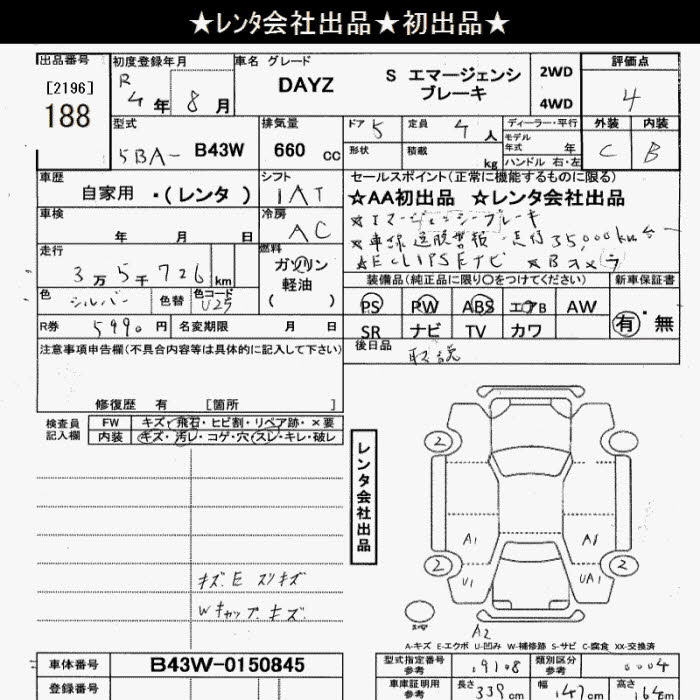 ★レンタ会社出品★初出品★
出品番号 初度登録年月 車名 グレード 評価点
[2196] R 4年 8月 DAYZ S エマージェンシ ブレーキ 2WD 4WD 4
188
型式 排気量 ドア 5 定員 4人 ディーラー・平行 外装 内装
5BA- B43W 660 cc 形状 積載 kg モデル年式 年 ハンドル 右・左 C B
車歴 シフト セールスポイント(正常に機能するものに限る)
自家用 ・(レンタ ) IAT ☆AA初出品 ☆レンタ会社出品
車検 冷房 ☆エマージェンシーブレーキ
年 月 日 AC ☆車線逸脱警報
走行 燃料 ☆ECLIPSEナビ ☆Bカメラ
3万5千726km ガソリン 軽油 ( )
装備品(純正品に限り〇をつけてください) 新車保証書
色 シルバー 色替 色コード U25
PS PW ABS エアB AW 有・無
R券 5990円 名変期限 月 日 SR ナビ TV カワ
注意事項申告欄(不具合内容等は具体的に記入して下さい) 後日品 取説
修復歴 有 [箇所 ]
検査員記入欄 FW キズ・飛石・ヒビ割・リペア跡・×要
内装 キズ・汚レ・コゲ・穴・スレ・キレ・破レ
レンタ会社出品
2
2 2
A1
U1 UA1
キズ E スリキズ
Wキャップ キズ
A2
A-キズ E-エクボ U-凹み W-補修跡 S-サビ C-腐食 XX-交換済
車体番号 B43W-0150845 型式指定番号 19108 類別区分 0004
参考 参考
登録番号 車庫証明用 参考 長さ 339cm 幅 147cm 高さ 164cm